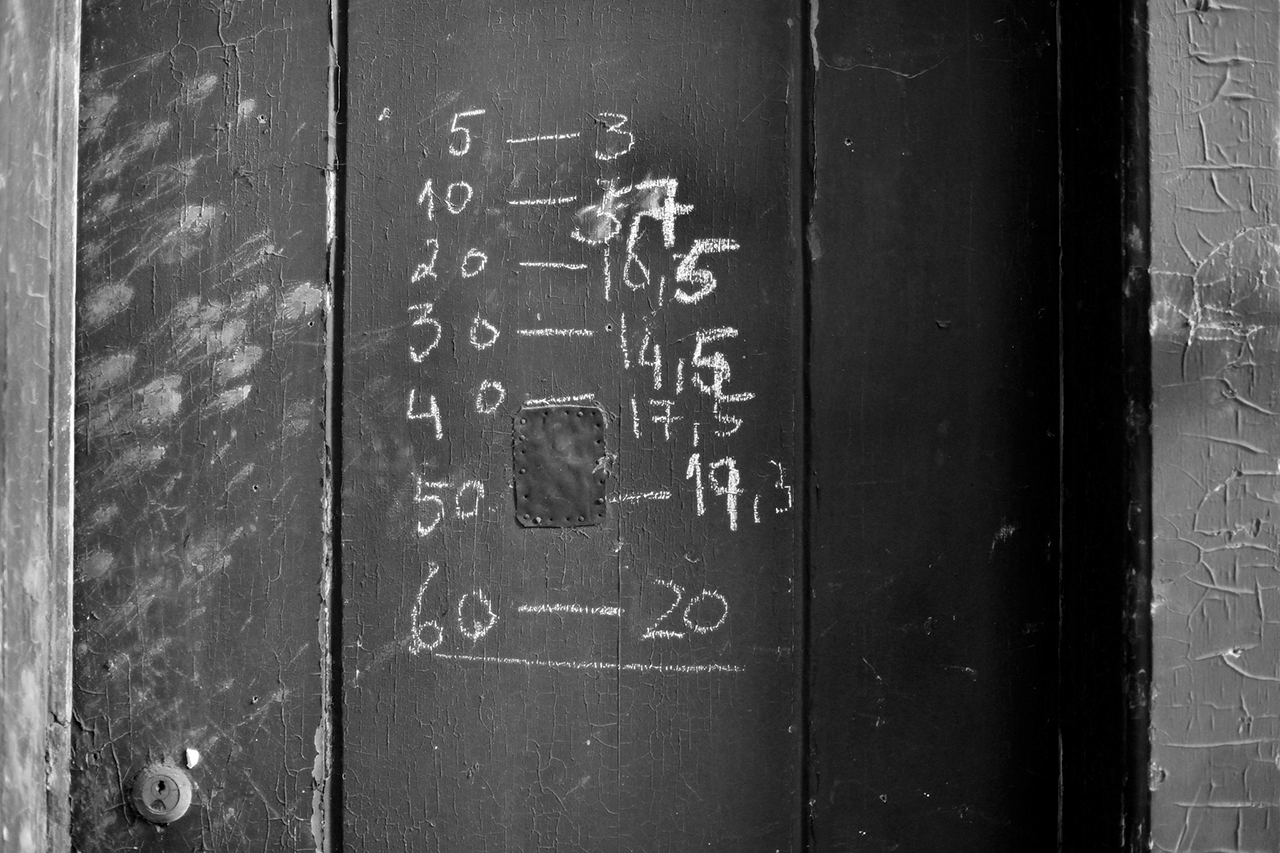 5 — 3
10 — 57
20 — 16,5
30 — 14,5
40 — 17,5
50 — 19,3
60 — 20